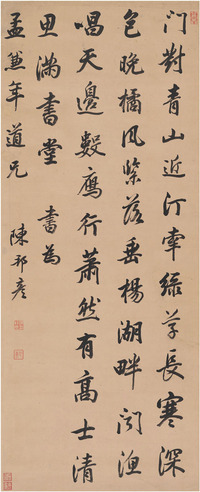 门對青山近汀牽緑草長寒深
包晚橘風緊落垂楊湖畔闻漁
唱天邊數鴈行蕭然有高士清
思滿書堂 書為
孟年道兄
陳邦彦